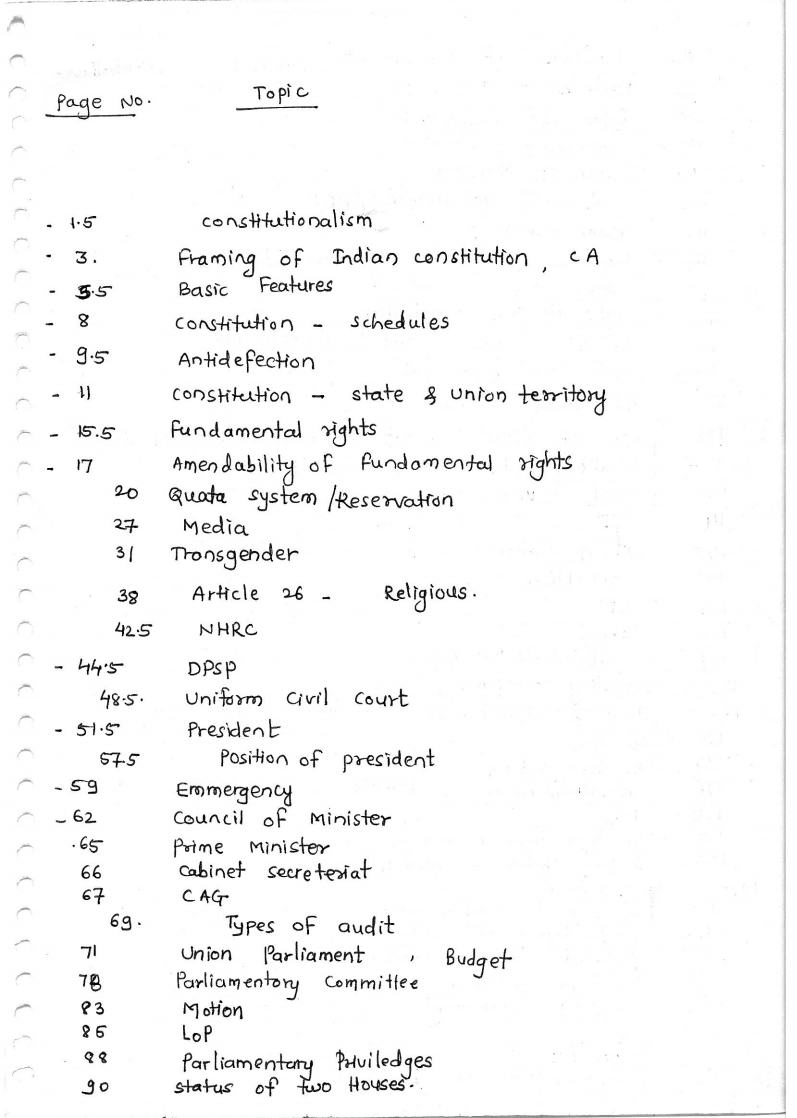 Page No. Topic
- 1.5 Constitutionalism
- 3. Framing of Indian constitution, CA
- 5.5 Basic Features
- 8 Constitution - schedules
- 9.5 Antidefection
- 11 Constitution - state & Union territory
- 15.5 Fundamental rights
- 17 Amendability of Fundamental rights
20 Quata system /Reservation
27 Media
31 Transgender
38 Article 26 - Religious.
42.5 NHRC
- 44.5 DPSP
48.5. Uniform Civil Court
- 51.5 President
57.5 Position of president
- 59 Emmergency
- 62 Council of Minister
.65 Prime Minister
66 Cabinet secreteriat
67 CAG
69. Types of audit
71 Union Parliament , Budget
78 Parliamentory Committee
83 Motion
86 LoP
88 Parliamentary Priviledges
90 Status of two Houses.